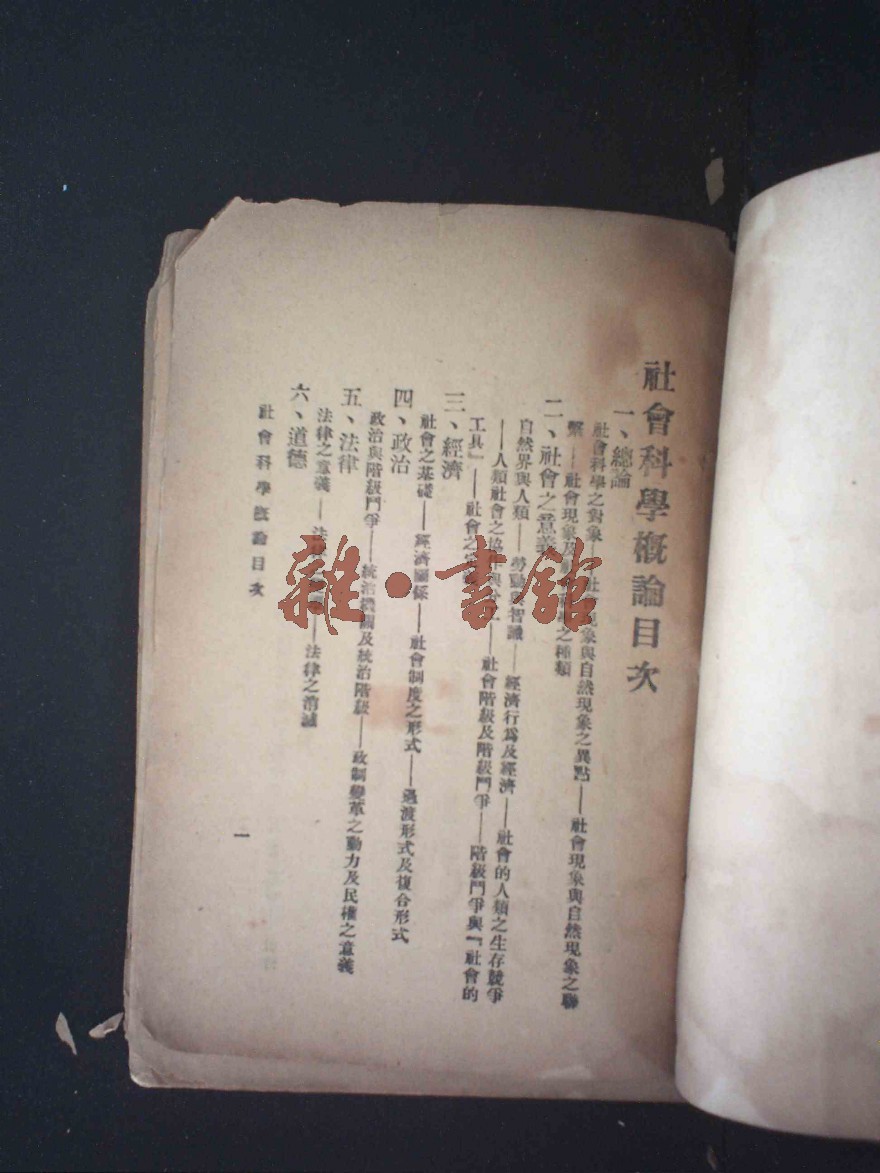 社會科學概論目次
一、總論
社會科學之對象——社會現象與自然現象之異點——社會現象與自然現象之聯
繫——社會現象及之種類
二、社會之意義
自然界與人類——勞動與智識——經濟行爲及經濟——社會的人類之生存競爭
——人類社會之協作與分工——社會階級及階級鬥爭——階級鬥爭與『社會的
工具』——社會之
三、經濟
社會之基礎——經濟關係——社會制度之形式——過渡形式及複合形式
四、政治
政治與階級鬥爭——統治機關及統治階級——政制變革之動力及民權之意義
五、法律
法律之意義——法——法律之消滅
六、道德
社會科學概論目次
一
雜·書館